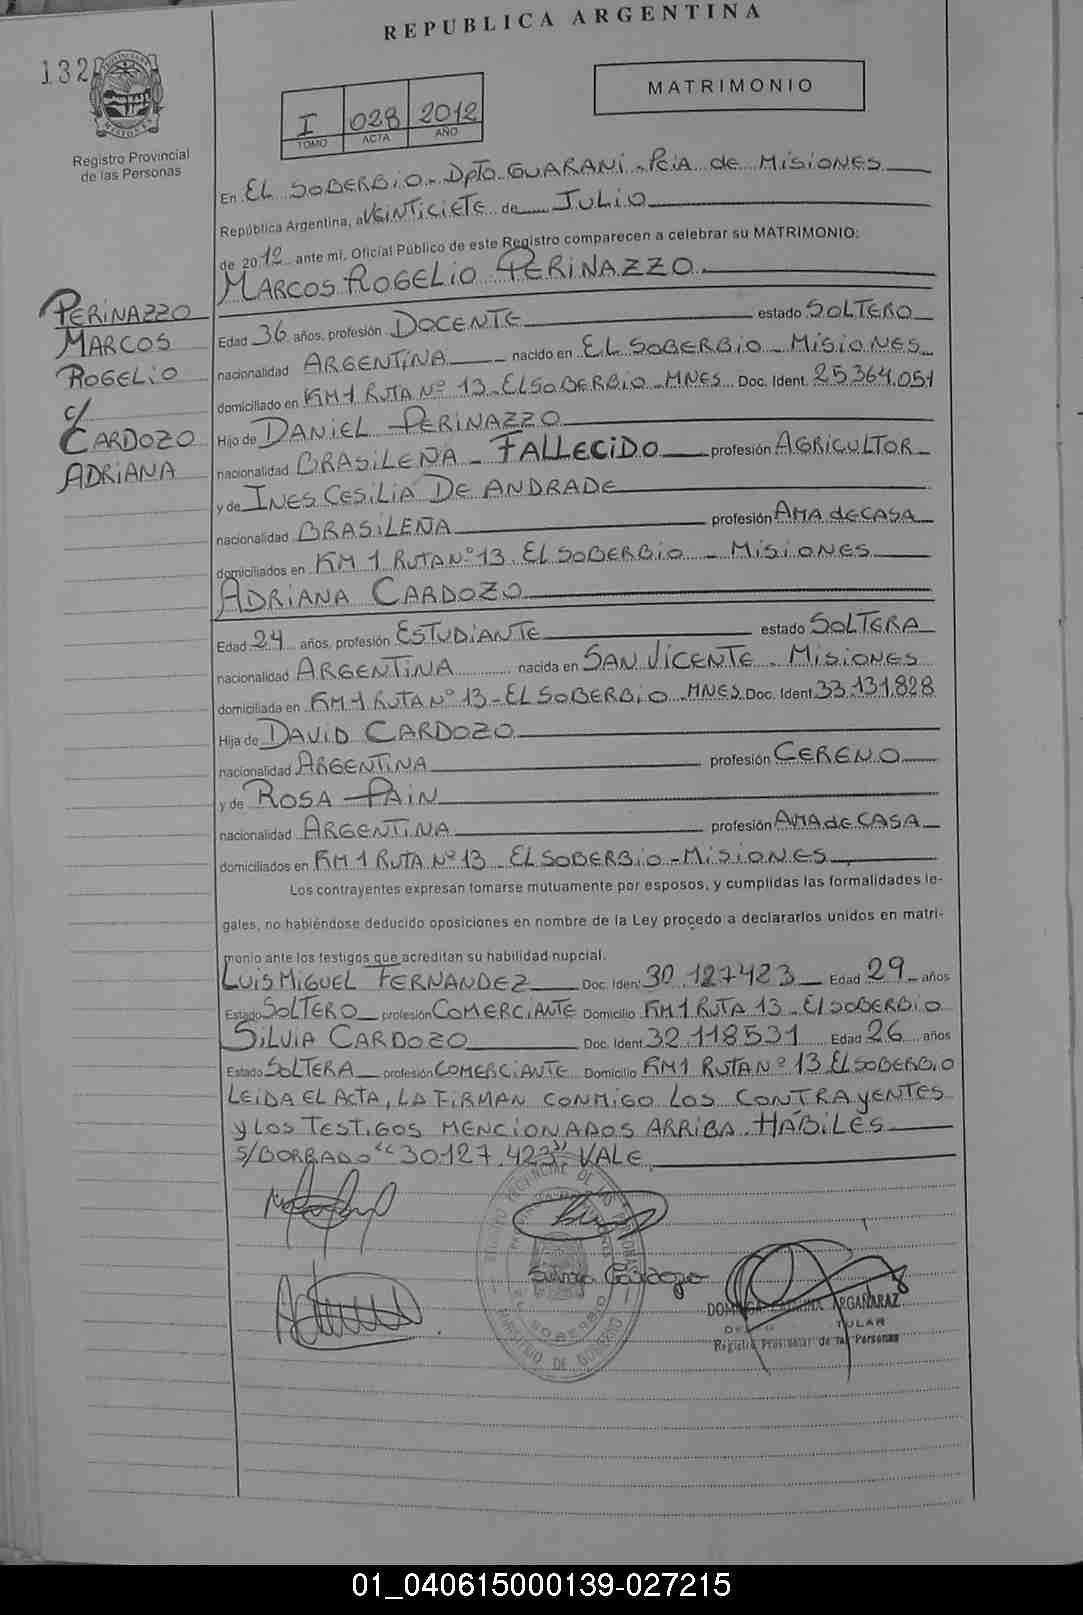 REPUBLICA ARGENTINA
132
Registro Provincial
de las Personas
MATRIMONIO
I 028 2012
TOMO ACTA AÑO
En EL SOBERBIO - DPTO GUARANÍ - PCIA de MISIONES
República Argentina, a VEINTICIETE de JULIO
de 2012 ante mi, Oficial Público de este Registro comparecen a celebrar su MATRIMONIO:
MARCOS ROGELIO PERINAZZO
PERINAZZO
MARCOS
ROGELIO
c/
CARDOZO
ADRIANA
Edad 36 años, profesión DOCENTE estado SOLTERO
nacionalidad ARGENTINA nacido en EL SOBERBIO - MISIONES
domiciliado en KM 1 RUTA Nº 13 - EL SOBERBIO - MNES Doc. Ident. 25.364.051
Hijo de DANIEL PERINAZZO
nacionalidad BRASILEÑA - FALLECIDO profesión AGRICULTOR
y de INES CESILIA DE ANDRADE
nacionalidad BRASILEÑA profesión AMA de CASA
domiciliados en KM 1 RUTA Nº 13. EL SOBERBIO - MISIONES
ADRIANA CARDOZO
Edad 24 años, profesión ESTUDIANTE estado SOLTERA
nacionalidad ARGENTINA nacida en SAN VICENTE - MISIONES
domiciliada en KM 1 RUTA Nº 13 - EL SOBERBIO - MNES Doc. Ident. 33.131.828
Hija de DAVID CARDOZO
nacionalidad ARGENTINA profesión CERENO
y de ROSA PAIN
nacionalidad ARGENTINA profesión AMA de CASA
domiciliados en KM 1 RUTA Nº 13 - EL SOBERBIO - MISIONES
Los contrayentes expresan tomarse mutuamente por esposos, y cumplidas las formalidades le-
gales, no habiéndose deducido oposiciones en nombre de la Ley procedo a declararlos unidos en matri-
monio ante los testigos que acreditan su habilidad nupcial.
LUIS MIGUEL FERNANDEZ Doc. Iden. 30.127423 Edad 29 años
Estado SOLTERO profesión COMERCIANTE Domicilio KM 1 RUTA 13 - El SOBERBIO
SILVIA CARDOZO Doc. Ident. 32.118531 Edad 26 años
Estado SOLTERA profesión COMERCIANTE Domicilio KM 1 RUTA Nº 13 EL SOBERBIO
LEIDA EL ACTA, LA FIRMAN CONMIGO LOS CONTRAYENTES
y LOS TESTIGOS MENCIONADOS ARRIBA HÁBILES
S/BORRADO "30127.423" VALE
Cardozo
ARGAÑARAZ
Registro Provincial de las Personas
01_040615000139-027215